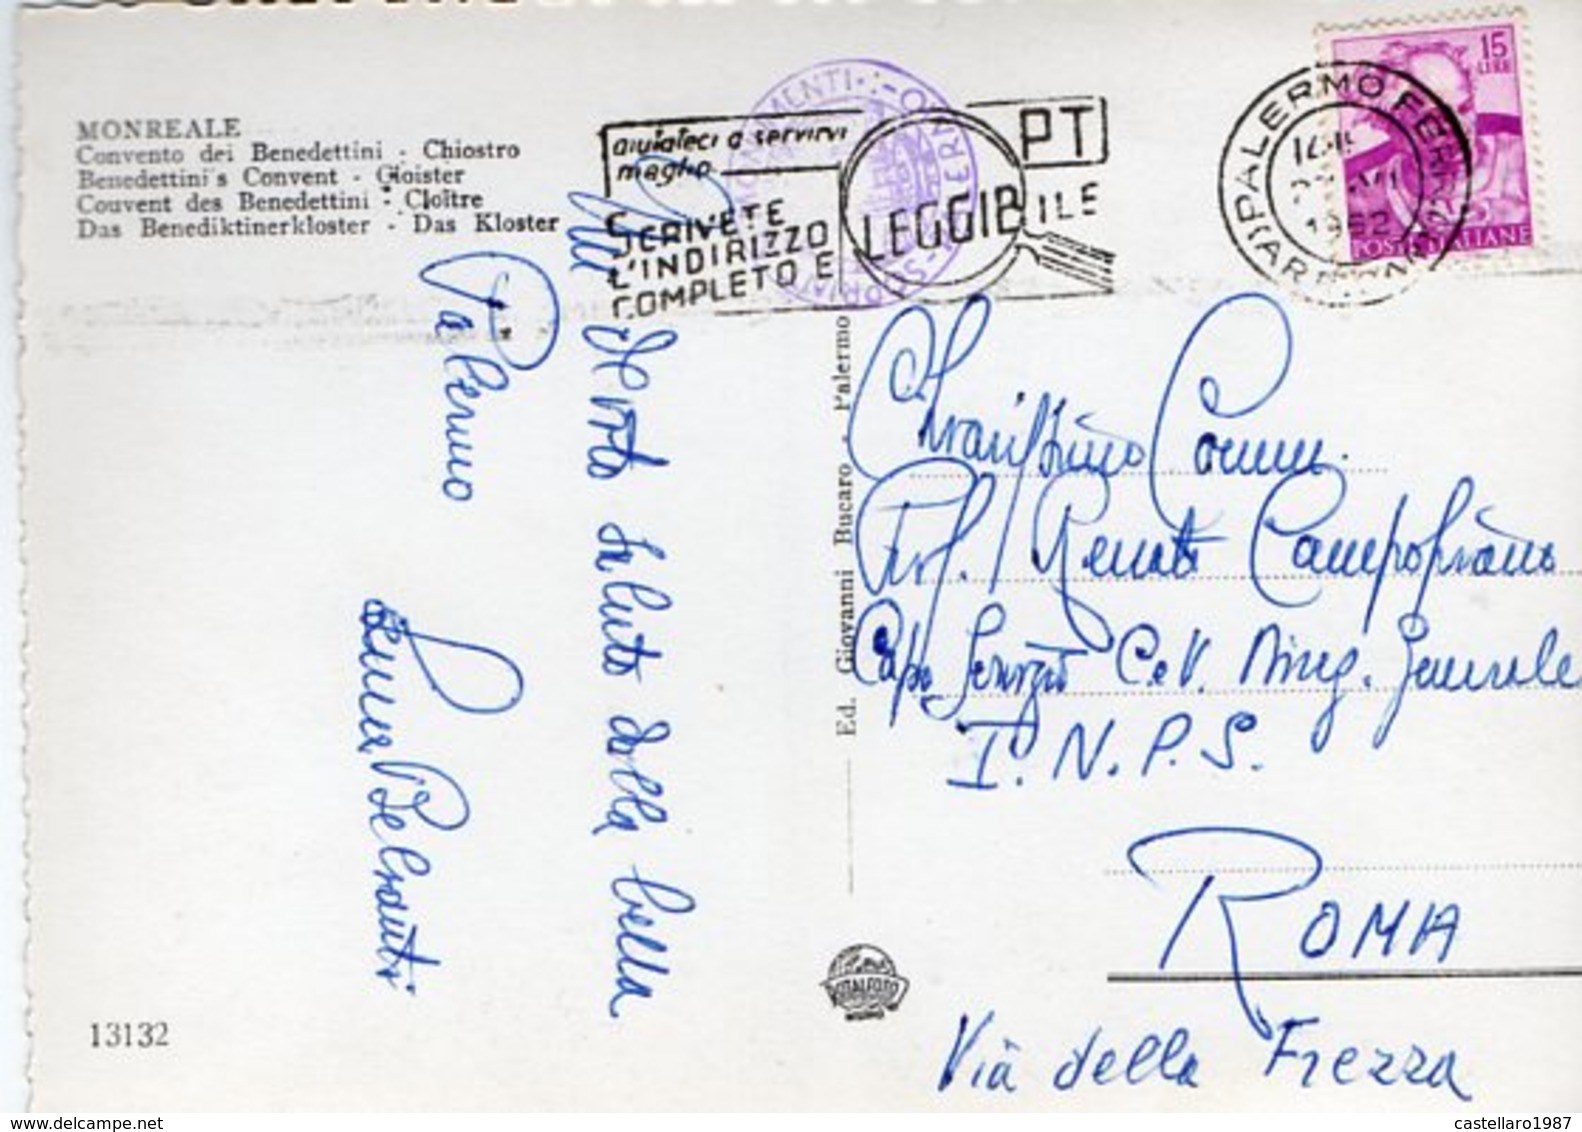 MONREALE
Convento dei Benedettini - Chiostro
Benedettini's Convent - Cloister
Couvent des Benedettini - Cloître
Das Benediktinerkloster - Das Kloster
aiutateci a servirvi
meglio
SCRIVETE
L'INDIRIZZO
COMPLETO E LEGGIBILE
PT
PALERMO FERROVIA
1962
15
LIRE
POSTE ITALIANE
devoto saluto dalla bella
Palermo
Ed. Giovanni Bucaro - Palermo
Chiarissimo Comm.
Prof. Renato
Capo Servizio C.e V. Ring. Generale
I.N.P.S.
ROMA
Via della Frezza
ITALFOTO
13132
castellaro1987